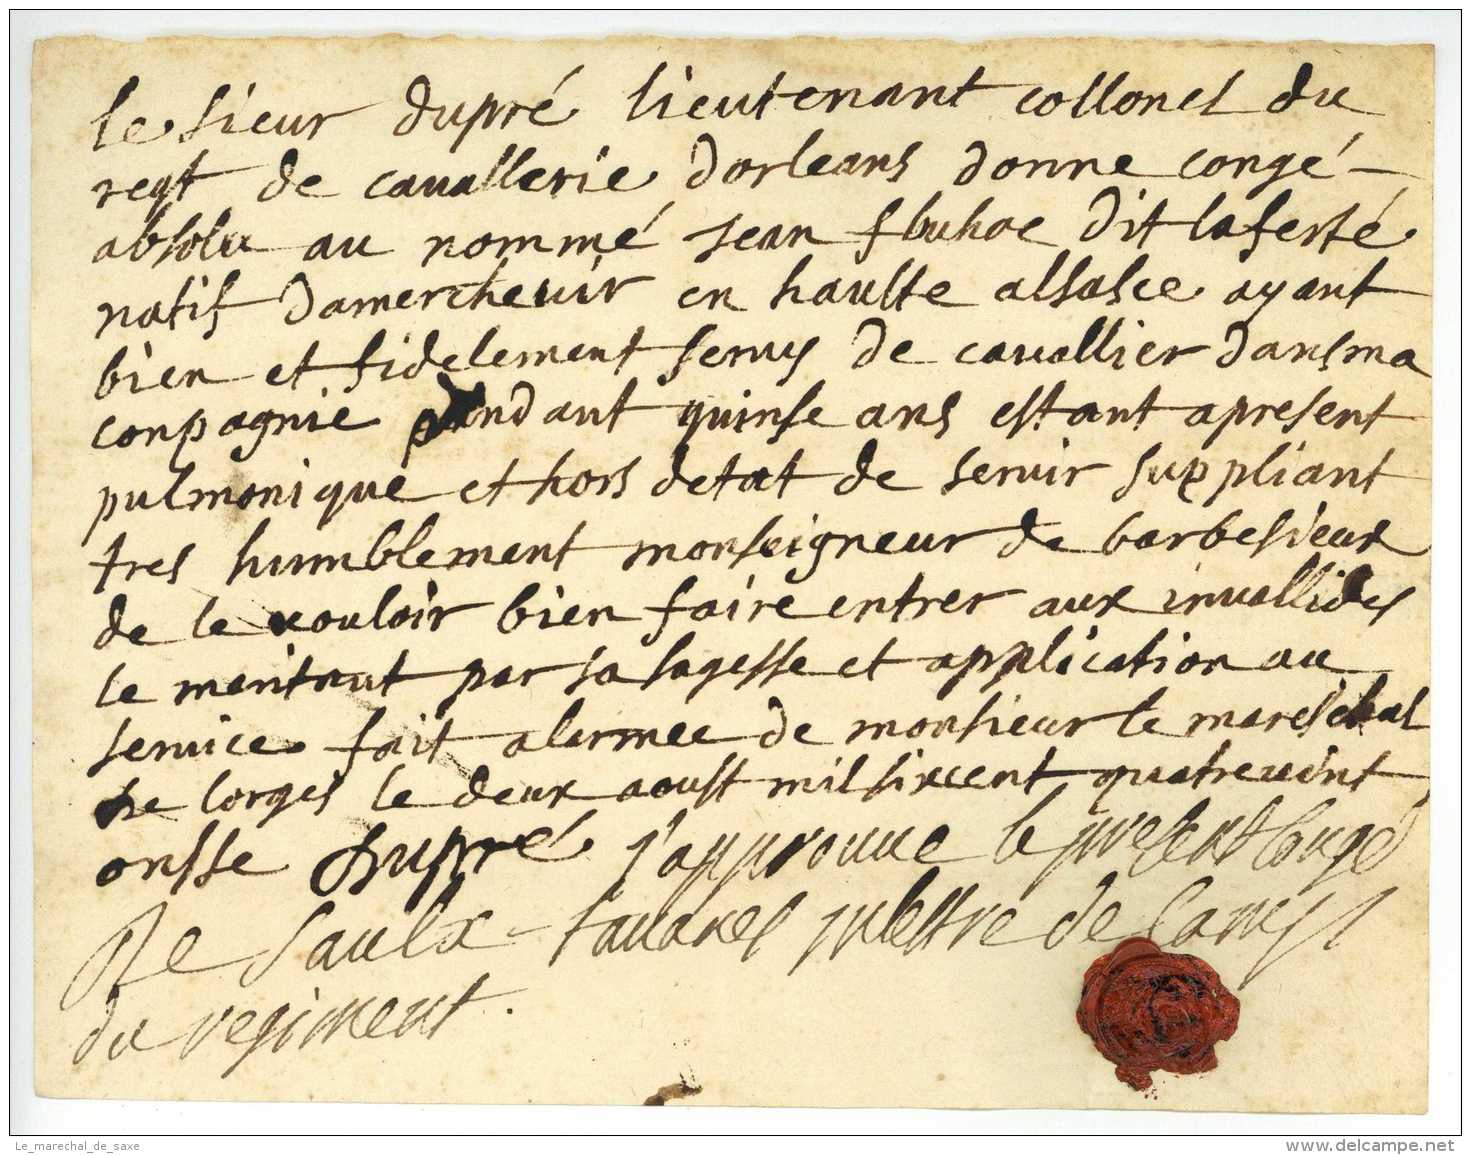 le sieur dupré lieutenant collonel du
regt de cauallerie dorleans donne congé
absolu au nommé jean fbuhoe dit laferté
natif damercheuir en haulte alsasce ayant
bien et fidelement seruy de cauallier dans ma
conpagnie pendant quinse ans estant apresent
pulmonique et hors detat de seruir suppliant
tres humblement monseigneur de barbesieux
de le vouloir bien faire entrer aux inuallides
le meritant par sa sagesse et application au
seruice fait alarmee de monsieur le mareschal
de lorges le deux aoust mil sixcent quatreuint
onsse Dupré j'approuue le present Congé
De Saulx-tauanes Mestre de Camp
du regiment.
Le_marechal_de_saxe
www.delcampe.net